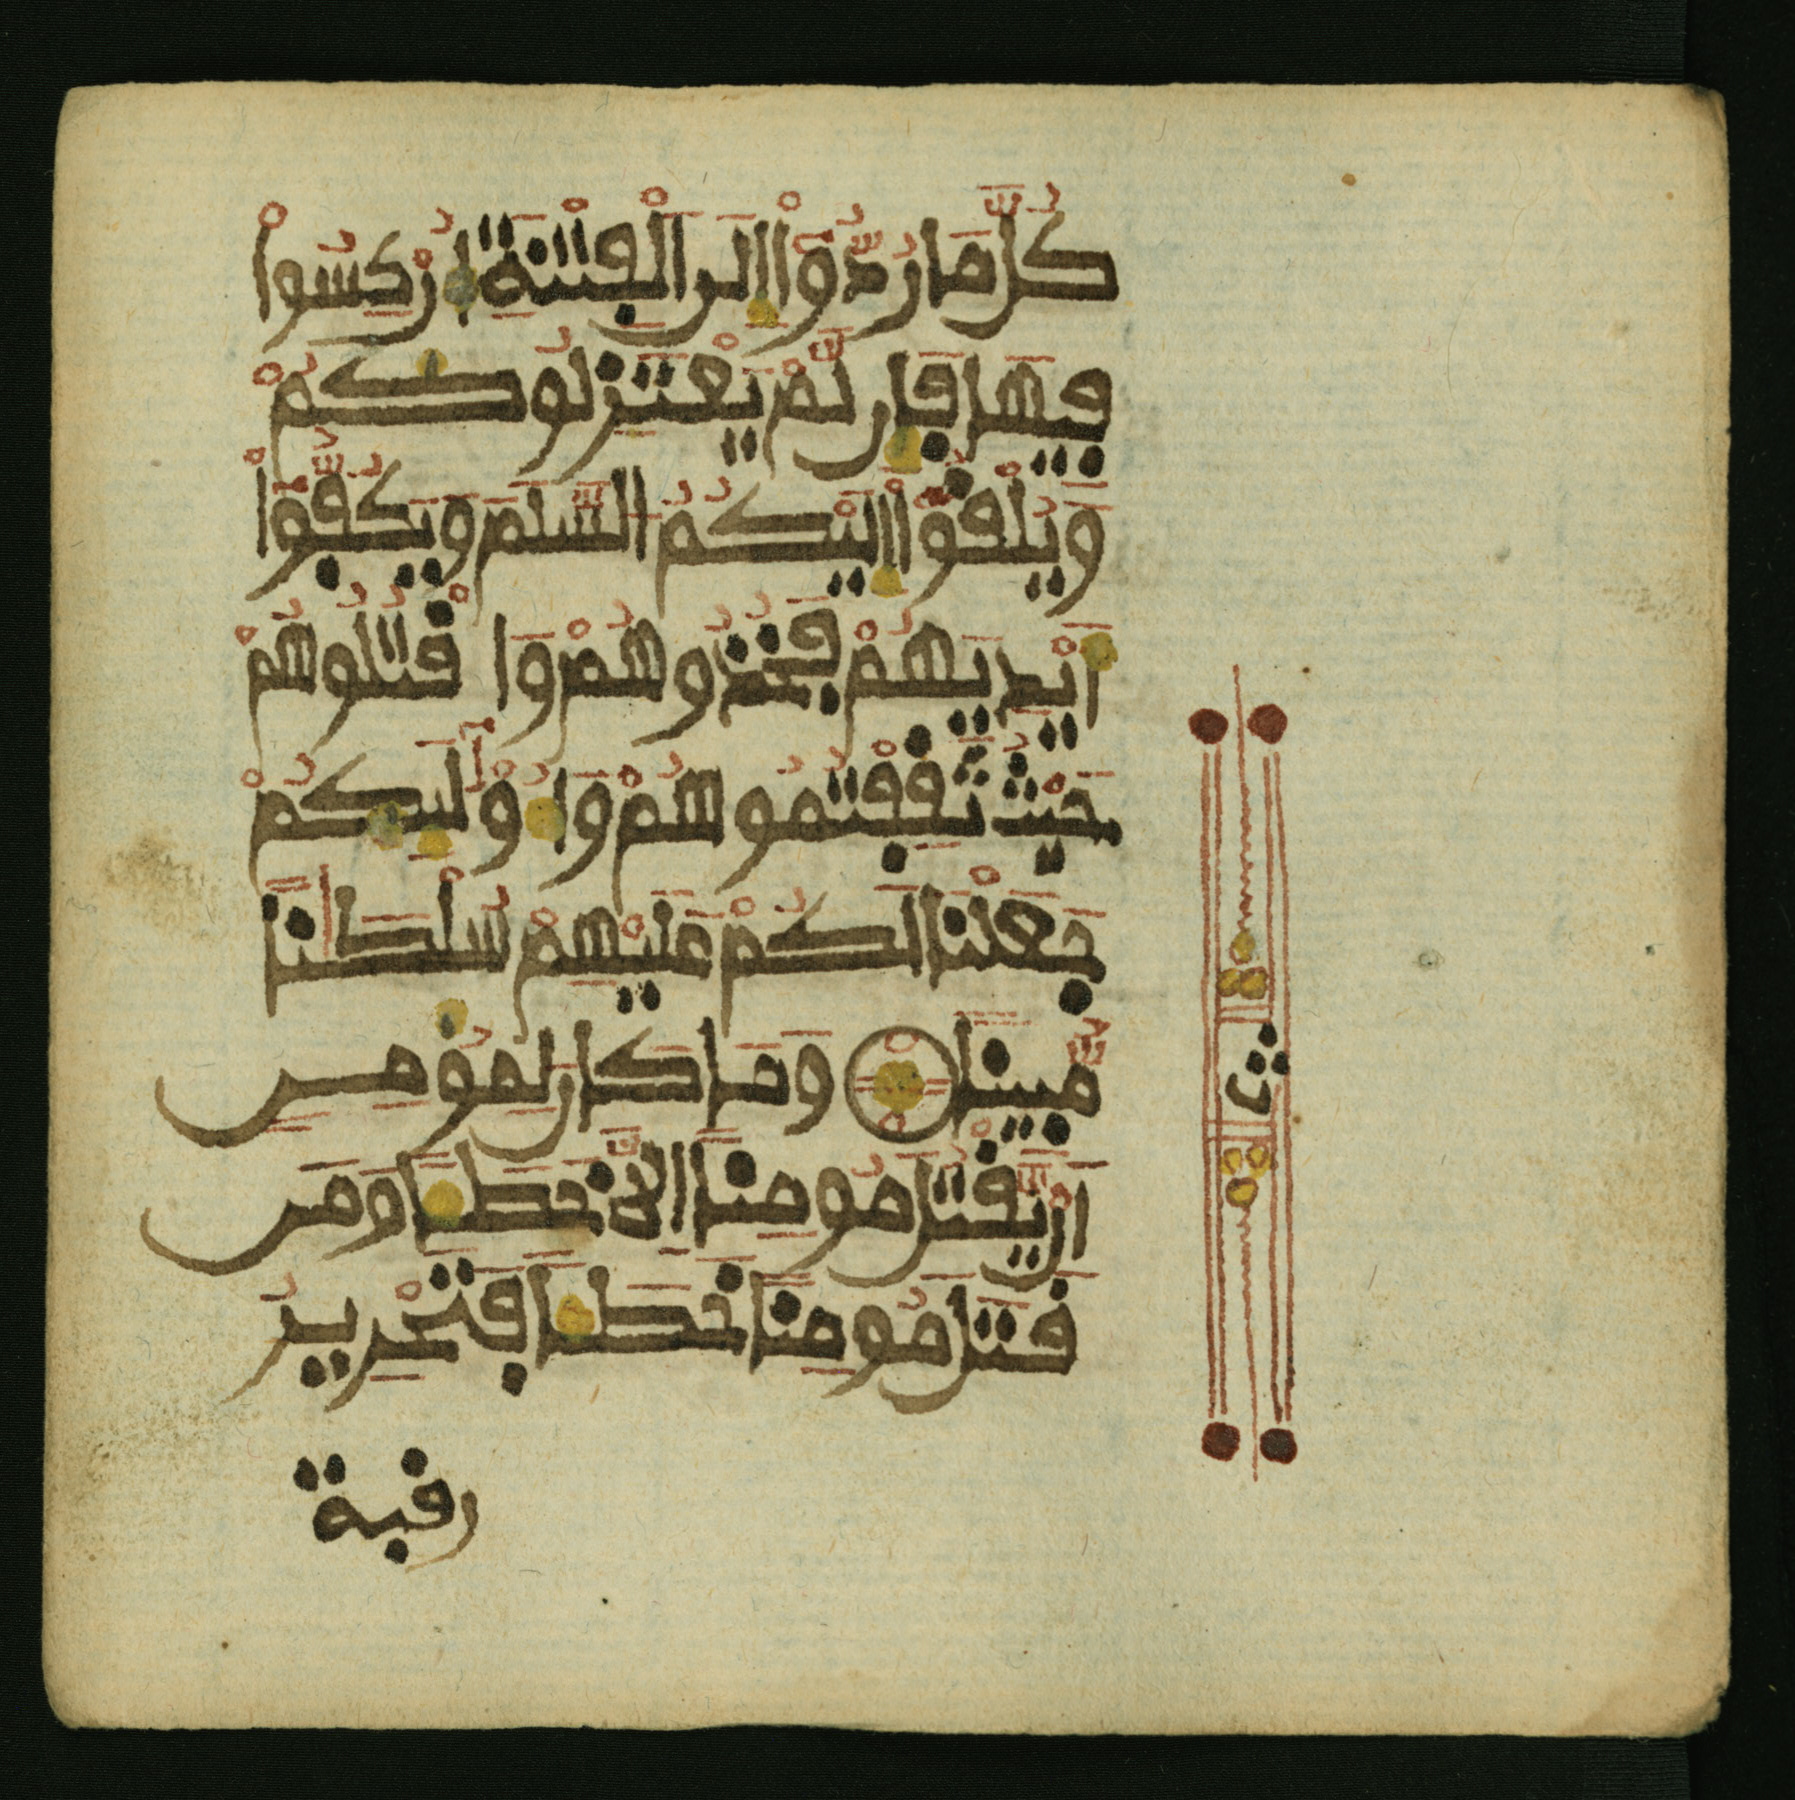 كُلَّ مَا رُدُّوٓاْ إِلَى اَ۬لْفِتْنَةِ أُرْكِسُواْ
فِيهَا فَإِن لَّمْ يَعْتَزِلُوكُمْ
وَيُلْقُوٓاْ إِلَيْكُمُ اُ۬لسَّلَمَ وَيَكُفُّوٓاْ
أَيْدِيَهُمْ فَخُذُوهُمْ وَاقْتُلُوهُمْ
حَيْثُ ثَقِفْتُمُوهُمْ وَأُوْلَٰٓئِكُمْ
جَعَلْنَا لَكُمْ عَلَيْهِمْ سُلْطَٰناً
مُّبِيناً وَمَا كَانَ لِمُؤْمِنٍ
أَنْ يَّقْتُلَ مُومِناً اِلَّا خَطَـٔاً وَمَن
قَتَلَ مُومِناً خَطَـٔاً فَتَحْرِيرُ
رقبة
ث